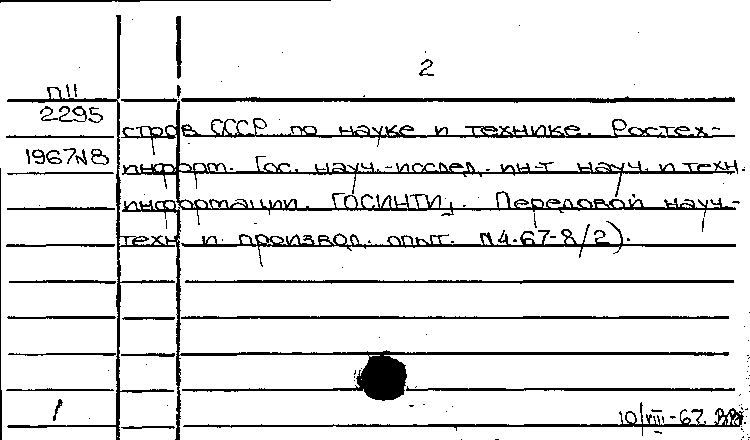 2
П11
2295
стров СССР по науке и технике. Ростех-
1967N8
информ. Гос. науч.-исслед. ин-т науч. и техн.
информации. ГОСИНТИ. Передовой науч.-
техн. и производ. опыт. N4-67-8/2).
1
10/VIII-67.